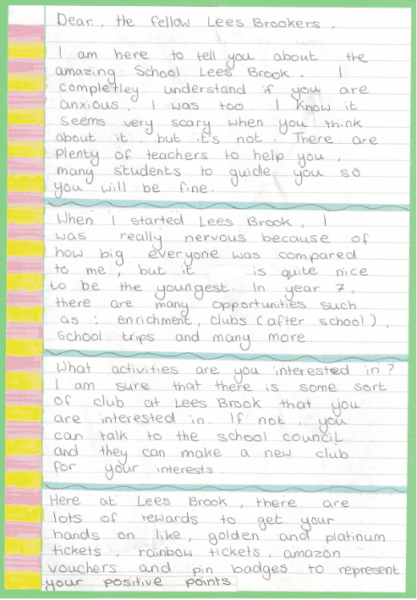 Dear, the fellow Lees Brookers,
I am here to tell you about the
amazing School Lees Brook. I
completley understand if you are
anxious, I was too. I know it
seems very scary when you think
about it, but it's not. There are
plenty of teachers to help you,
many students to guide you so
you will be fine.
When I started Lees Brook, I
was really nervous because of
how big everyone was compared
to me, but it is quite nice
to be the youngest. In year 7,
there are many opportunities such
as: enrichment, clubs (after school),
School trips and many more.
What activities are you interested in?
I am sure that there is some sort
of club at Lees Brook that you
are interested in. If not, you
can talk to the school council
and they can make a new club
for your interests.
Here at Lees Brook, there are
lots of rewards to get your
hands on like, golden and platinum
tickets, rainbow tickets, amazon
vouchers and pin badges to represent
your positive points.